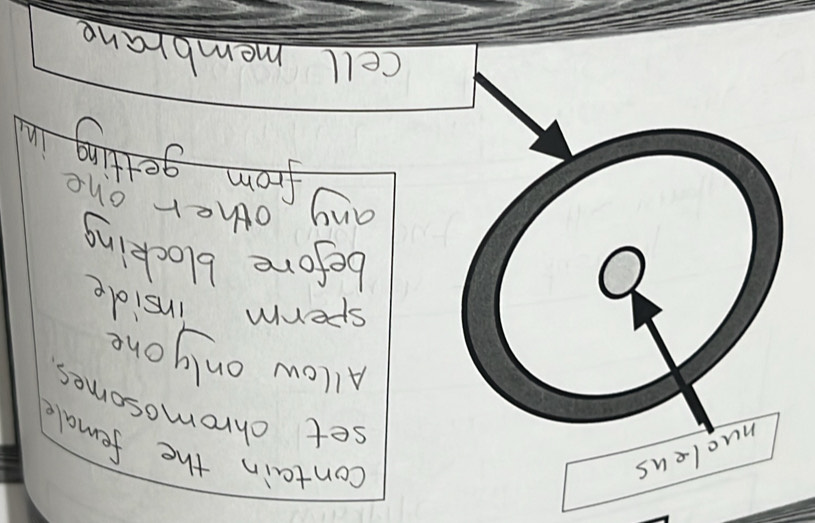 nucleus
contain the female
set chromosomes.
Allow only one
sperm inside
before blocking
any other one
from getting in.
cell membrane